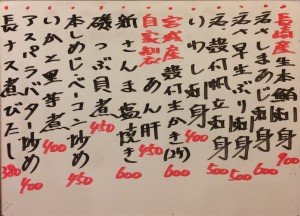 長崎産生本鮪刺身 900
活〆しまあじ刺身 600
活〆早生ぶり刺身 500
活〆殻付帆立刺身 500
いわし刺身 400
宮城産殻付生かき(2ケ) 600
自家製あん肝 450
新さんま塩焼き 600
磯つぶ貝煮 450
本しめじベーコン炒め 450
いかと里芋煮 400
アスパラバター炒め 400
長ナス煮びたし 380